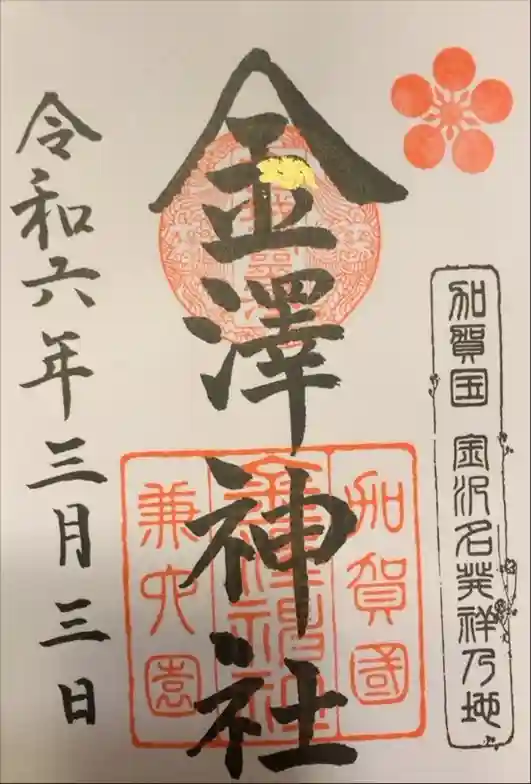 加賀国 金沢名発祥乃地
金澤神社
加賀國
金澤神社
兼六園
令和六年三月三日